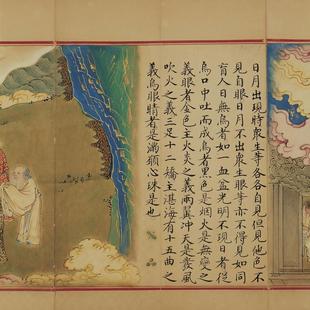 日月出現時衆生等各各自見但見他色不
見自眼日月不出衆生眼等亦不得見如同
盲人日無烏者如一血盆光明不現日者從
烏口中吐而成烏者黑色是烟火是無變之
義眼者金色主火炎之義兩翼冲天是發風
吹火之義三足十二嬌主湛海有十五曲之
義烏眼睛者是満心珠是也